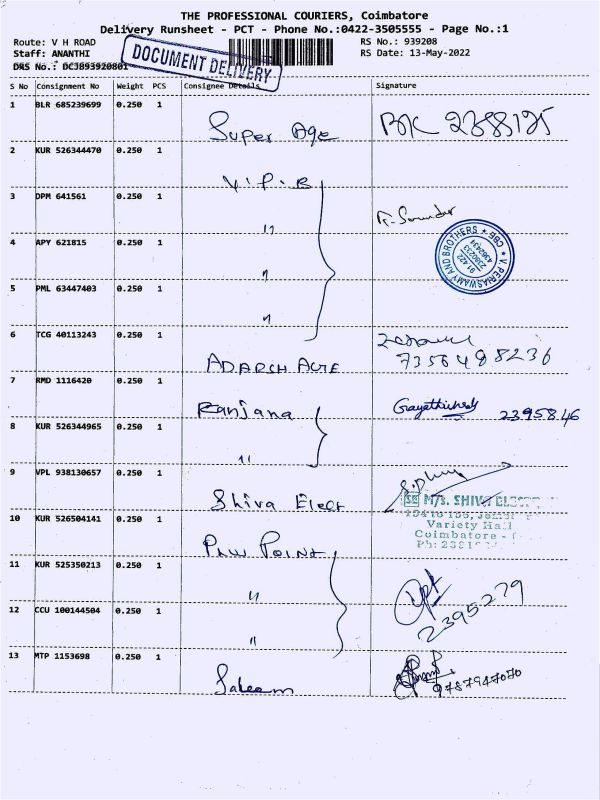 THE PROFESSIONAL COURIERS, Coimbatore
Delivery Runsheet - PCT - Phone No.:0422-3505555 - Page No.:1
Route: V H ROAD
RS No.: 939208
Staff: ANANTHI
RS Date: 13-May-2022
DRS No.: DCJB93920801
DOCUMENT DELIVERY
S No Consignment No Weight PCS Consignee Details Signature
1 BLR 685239699 0.250 1
Super Age
2 KUR 526344470 0.250 1
V.P.B
3 DPM 641561 0.250 1
"
V. PERIASWAMY AND BROTHERS * CBE *
4 APY 621815 0.250 1
"
5 PML 63447403 0.250 1
"
6 TCG 40113243 0.250 1
ADARSH 7356498236
7 RMD 1116420 0.250 1
Ranjana 2395846
8 KUR 526344965 0.250 1
"
9 VPL 938130657 0.250 1
Shiva Elect
M/s. SHIVA
Variety Hall
Coimbatore -
10 KUR 526504141 0.250 1
Point
11 KUR 525350213 0.250 1
"
2395279
12 CCU 100144504 0.250 1
"
13 MTP 1153698 0.250 1
Saleem 9787947070